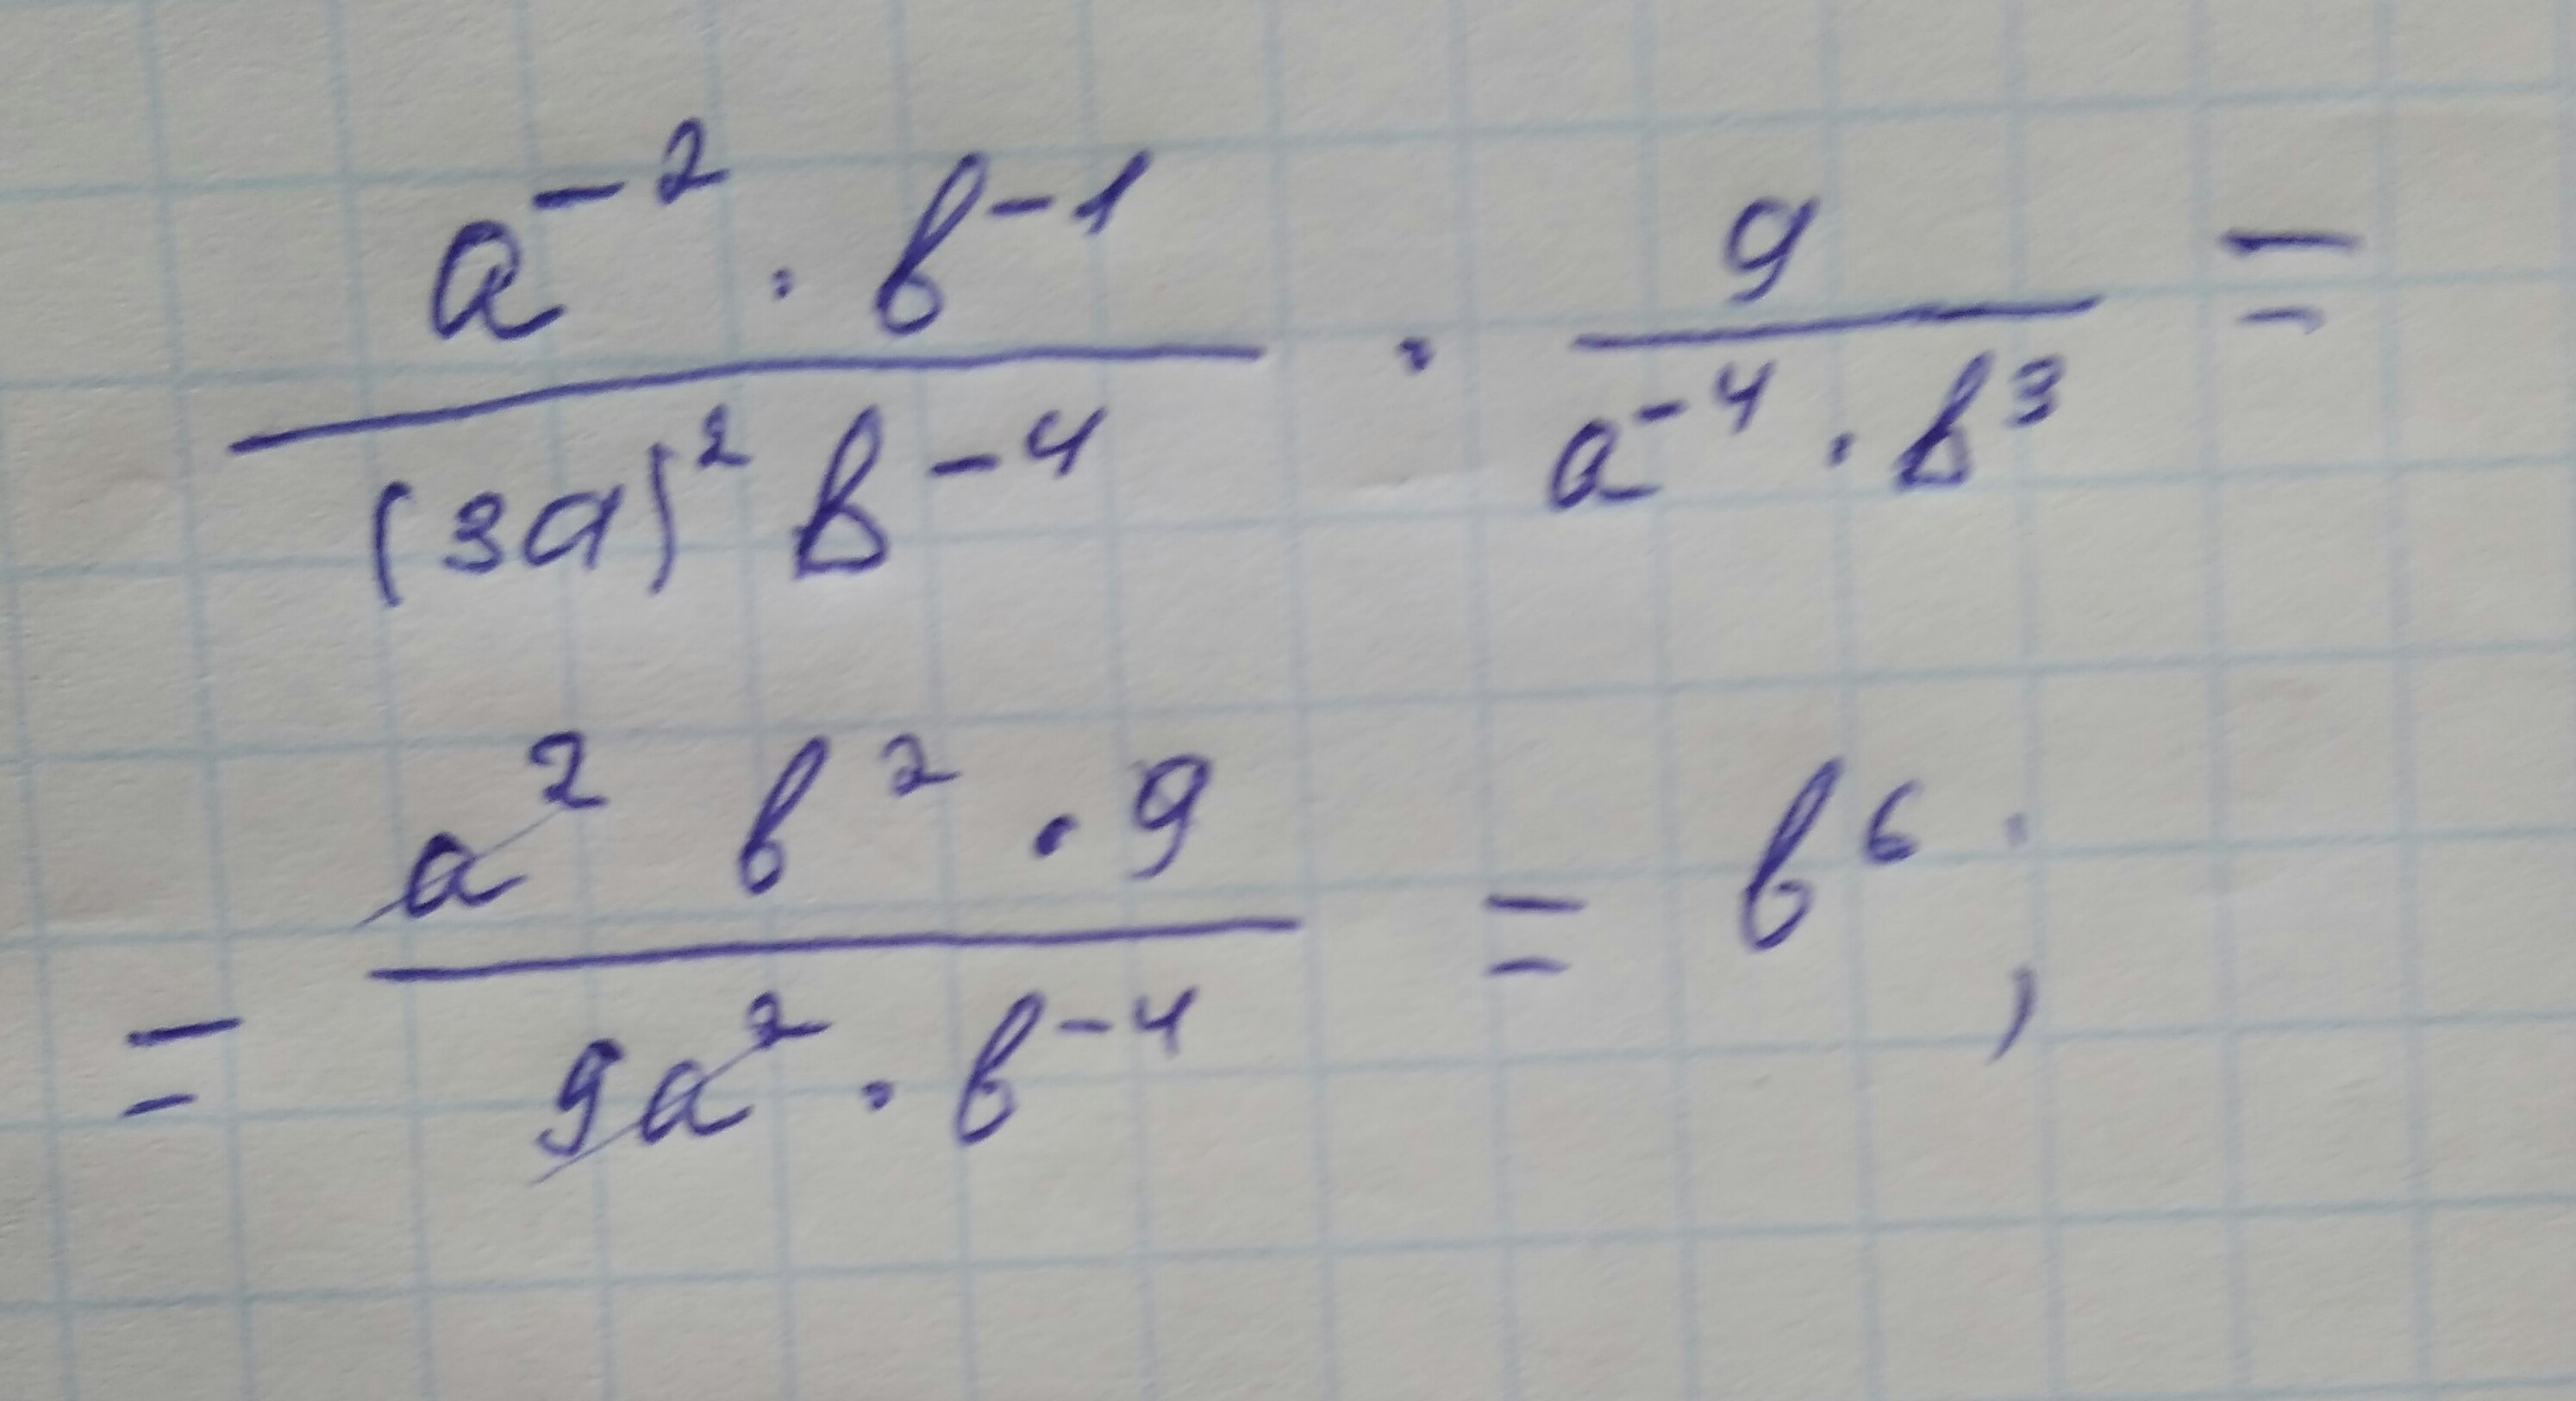 a⁻² · b⁻¹ / (3a)² b⁻⁴ · 9 / a⁻⁴ · b³ =
= a² b² · 9 / 9a² · b⁻⁴ = b⁶ ;